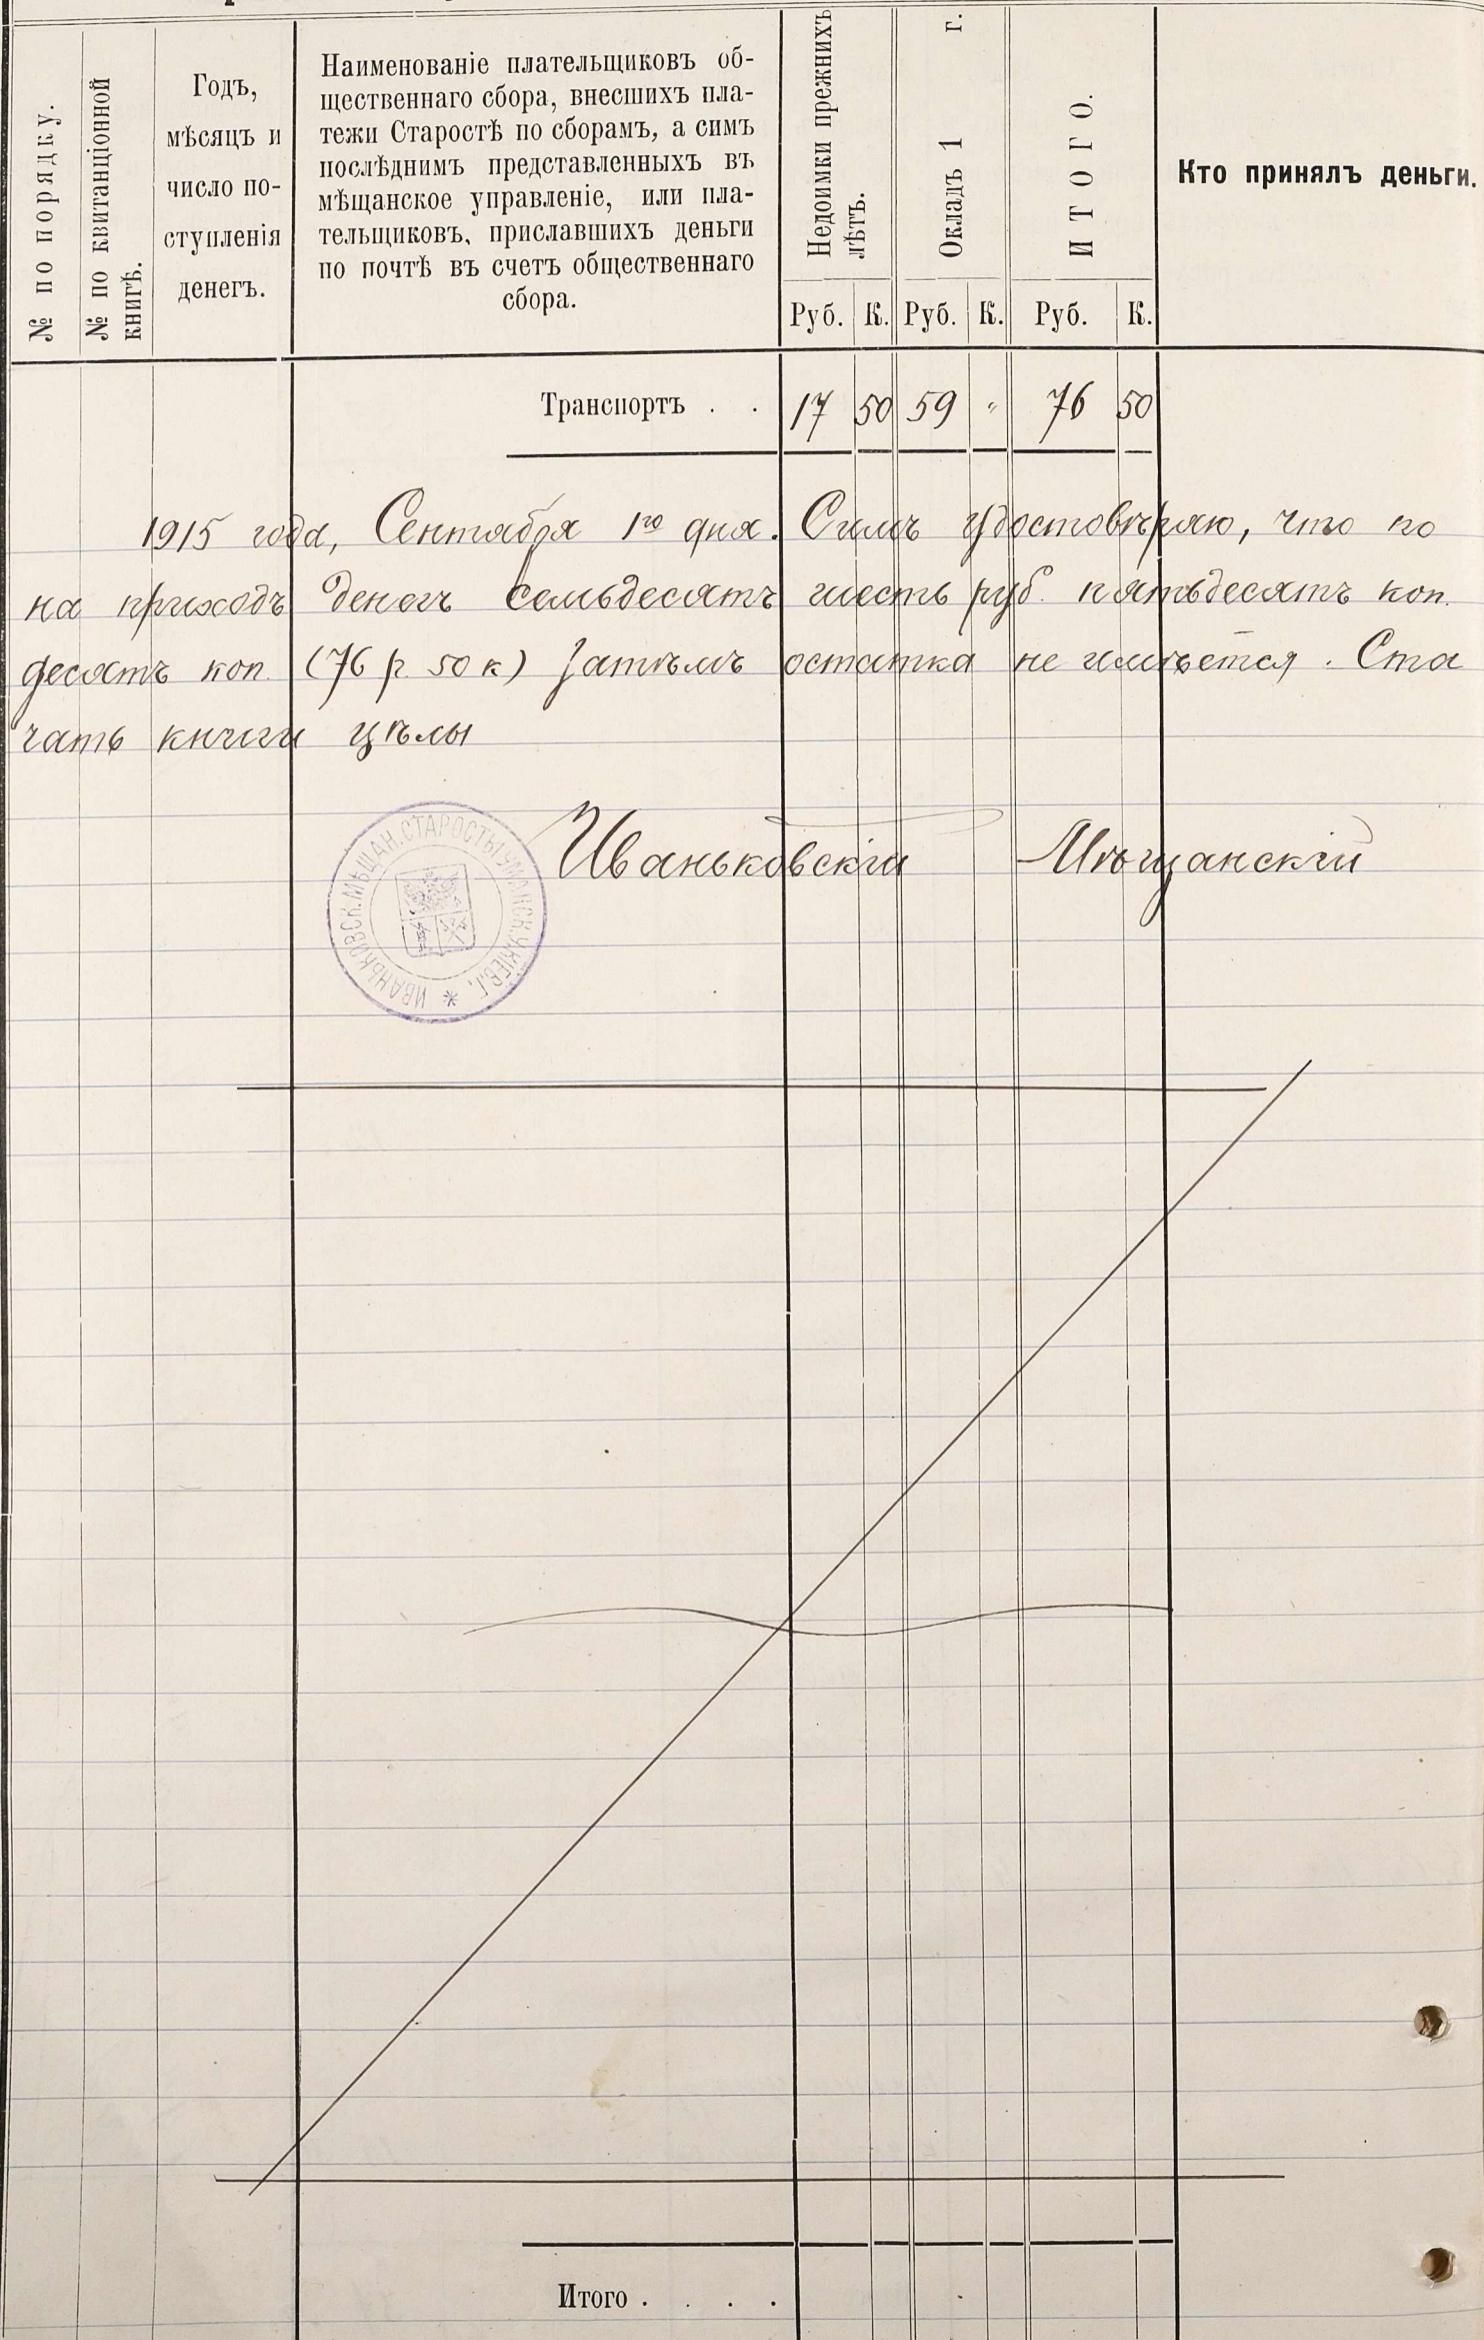 № по порядку.
№ по квитанціонной
книгѣ.
Годъ,
мѣсяцъ и
число по-
ступленія
денегъ.
Наименованіе плательщиковъ об-
щественнаго сбора, внесшихъ пла-
тежи Старостѣ по сборамъ, а симъ
послѣднимъ представленныхъ въ
мѣщанское управленіе, или пла-
тельщиковъ, приславшихъ деньги
по почтѣ въ счетъ общественнаго
сбора.
Недоимки прежнихъ
лѣтъ.
Окладъ 1 г.
ИТОГО.
Кто принялъ деньги.
Руб. К. Руб. К. Руб. К.
Транспортъ . . 17 50 59 " 76 50
1915 года, Сентября 1го дня. Симъ удостовѣряю, что по
на приходъ денегъ семьдесятъ шесть руб. пятьдесятъ коп.
десятъ коп. (76 р. 50 к) Затѣмъ остатка не имѣется. Ста
чать книги цѣлы
Иваньковскій Мѣщанскій
ИВАНЬКОВСК. МѢЩАН. СТАРОСТЫ УМАНСК. У. КІЕВ. Г. *
Итого . . . .